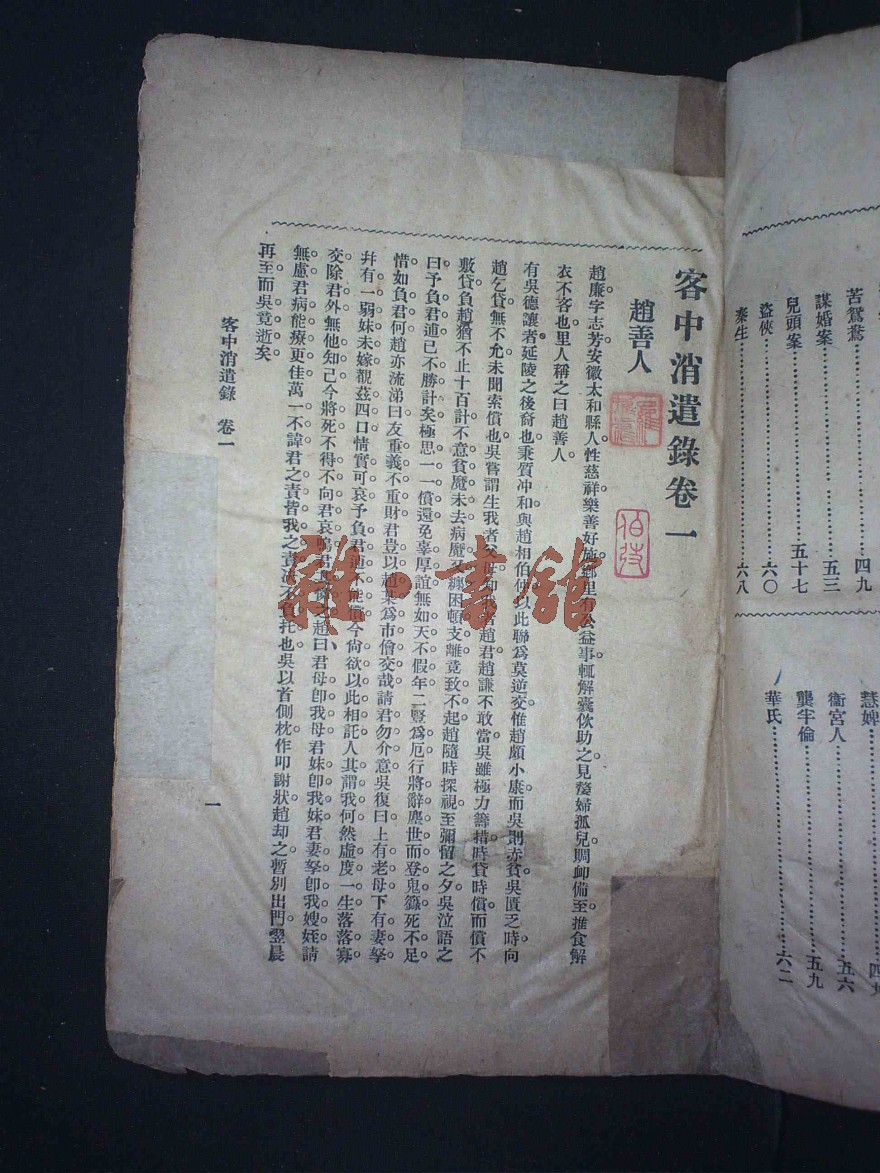 苦鴛鴦…………四九
謀婚案…………五三
兒頭案…………五十七
盜俠…………六〇
秦生…………六八
慧婢
衞宮人…………五六
龔半倫…………五九
華氏…………六二
客中消遣錄卷一
趙善人
趙廉字志芳安徽太和縣人性慈祥樂善好施鄉里有公益事輒解囊佽助之見嫠婦孤兒賙卹備至推食解
衣不吝也里人稱之曰趙善人。
有吳德讓者延陵之後裔也秉質冲和與趙相伯仲以此聯爲莫逆交惟趙頗小康而吳則赤貧吳匱乏時向
趙乞貸無不允未聞索償也吳嘗謂生我者父母知我者趙君趙謙不敢當吳雖極力籌措時貸時償而償不
敷貸負趙猶不止十百計不意貧魔未去病魔又纏困頓支離竟致不起趙隨時探視至彌留之夕吳泣語之
曰予負君逋已不勝計矣極思一一償還免辜厚誼無如天不假年二豎爲厄行將辭塵世而登鬼籙死不足
惜如負君何趙亦流涕曰友重義不重財君豈以趙某爲市儈交哉請君勿介意吳復曰上有老母下有妻孥
幷有一弱妹未嫁覩茲四口情實可哀予負君逋不能償今尙欲以此相託人其謂我何然虛度一生落落寡
交除君外無他知己今將死不得不向君哀鳴君其憐之趙曰君母卽我母君妹卽我妹君妻孥卽我嫂姪請
無慮君病能療更佳萬一不諱君之責皆我之責決不負托也吳以首側枕作叩謝狀趙却之暫別出門翌晨
再至而吳竟逝矣。
客中消遣錄 卷一
一
雜·書館